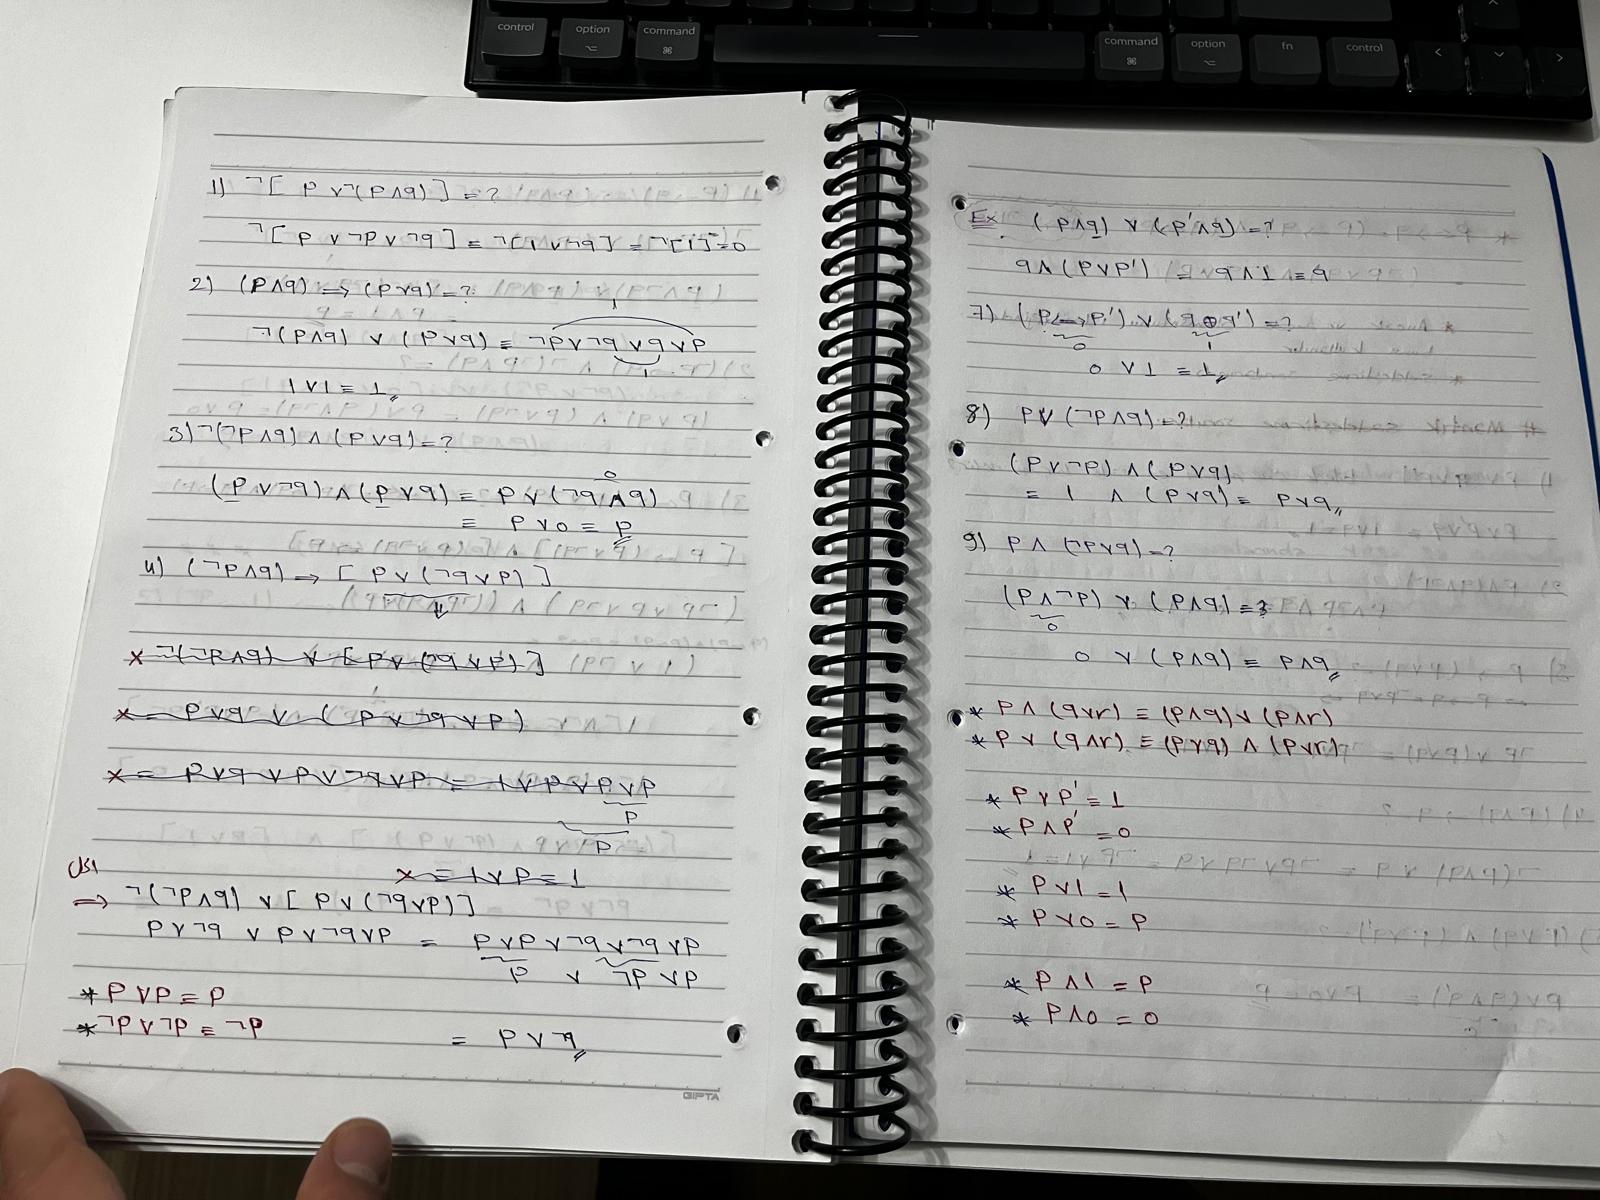 control option command ⌘ command ⌘ option fn control
1) ¬[ p ∨ ¬(p∧q) ] = ?
¬[ p ∨ ¬p ∨ ¬q ] ≡ ¬[1 ∨ ¬q] ≡ ¬[1] = 0
2) (p∧q) → (p∨q) = ?
1
¬(p∧q) ∨ (p∨q) ≡ ¬p ∨ ¬q ∨ q ∨ p
1
1 ∨ 1 ≡ 1
3) ¬(¬p∧q) ∧ (p∨q) = ?
0
(p ∨ ¬q) ∧ (p∨q) ≡ p ∨ (¬q ∧ q)
≡ p ∨ 0 ≡ p
4) (¬p∧q) → [ p ∨ (¬q∨p) ]
x ¬(¬p∧q) ∨ [p∨ (¬q ∨p)]
x = p∨q ∨ ( p ∨ ¬q ∨ p)
x = p∨q ∨ p ∨ ¬q ∨ p = 1 ∨ p ∨ p ∨ p
p
p
x = 1∨p = 1
→ ¬(¬p∧q) ∨ [ p ∨ (¬q∨p)]
p∨¬q ∨ p∨¬q∨p = p∨p∨¬q∨¬q∨p
p ∨ ¬p ∨ p
* p∨p ≡ p
* ¬p∨¬p ≡ ¬p
= p ∨ ¬q
GIPTA
Ex. (p∧q) ∨ (p'∧q) = ?
q∧(p∨p') = q∧1 = q
7) (p↔p') ∨ (q⊕q') = ?
0 1
0 ∨ 1 = 1
8) p∨ (¬p∧q) = ?
(p∨¬p) ∧ (p∨q)
= 1 ∧ (p∨q) = p∨q
9) p∧ (¬p∨q) = ?
(p∧¬p) ∨ (p∧q) = ?
0
0 ∨ (p∧q) ≡ p∧q
* p∧ (q∨r) ≡ (p∧q) ∨ (p∧r)
* p∨ (q∧r) ≡ (p∨q) ∧ (p∨r)
* p∨p' ≡ 1
* p∧p' = 0
* p∨1 = 1
* p∨0 = p
* p∧1 = p
* p∧0 = 0